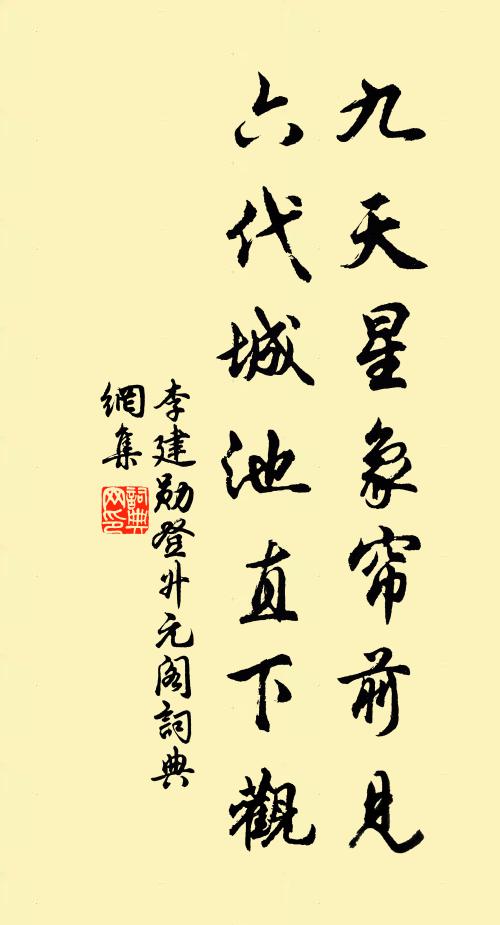 九天星象帘前見
六代城池直下觀
李建勋登升元阁詞典
網集
詞典
网印